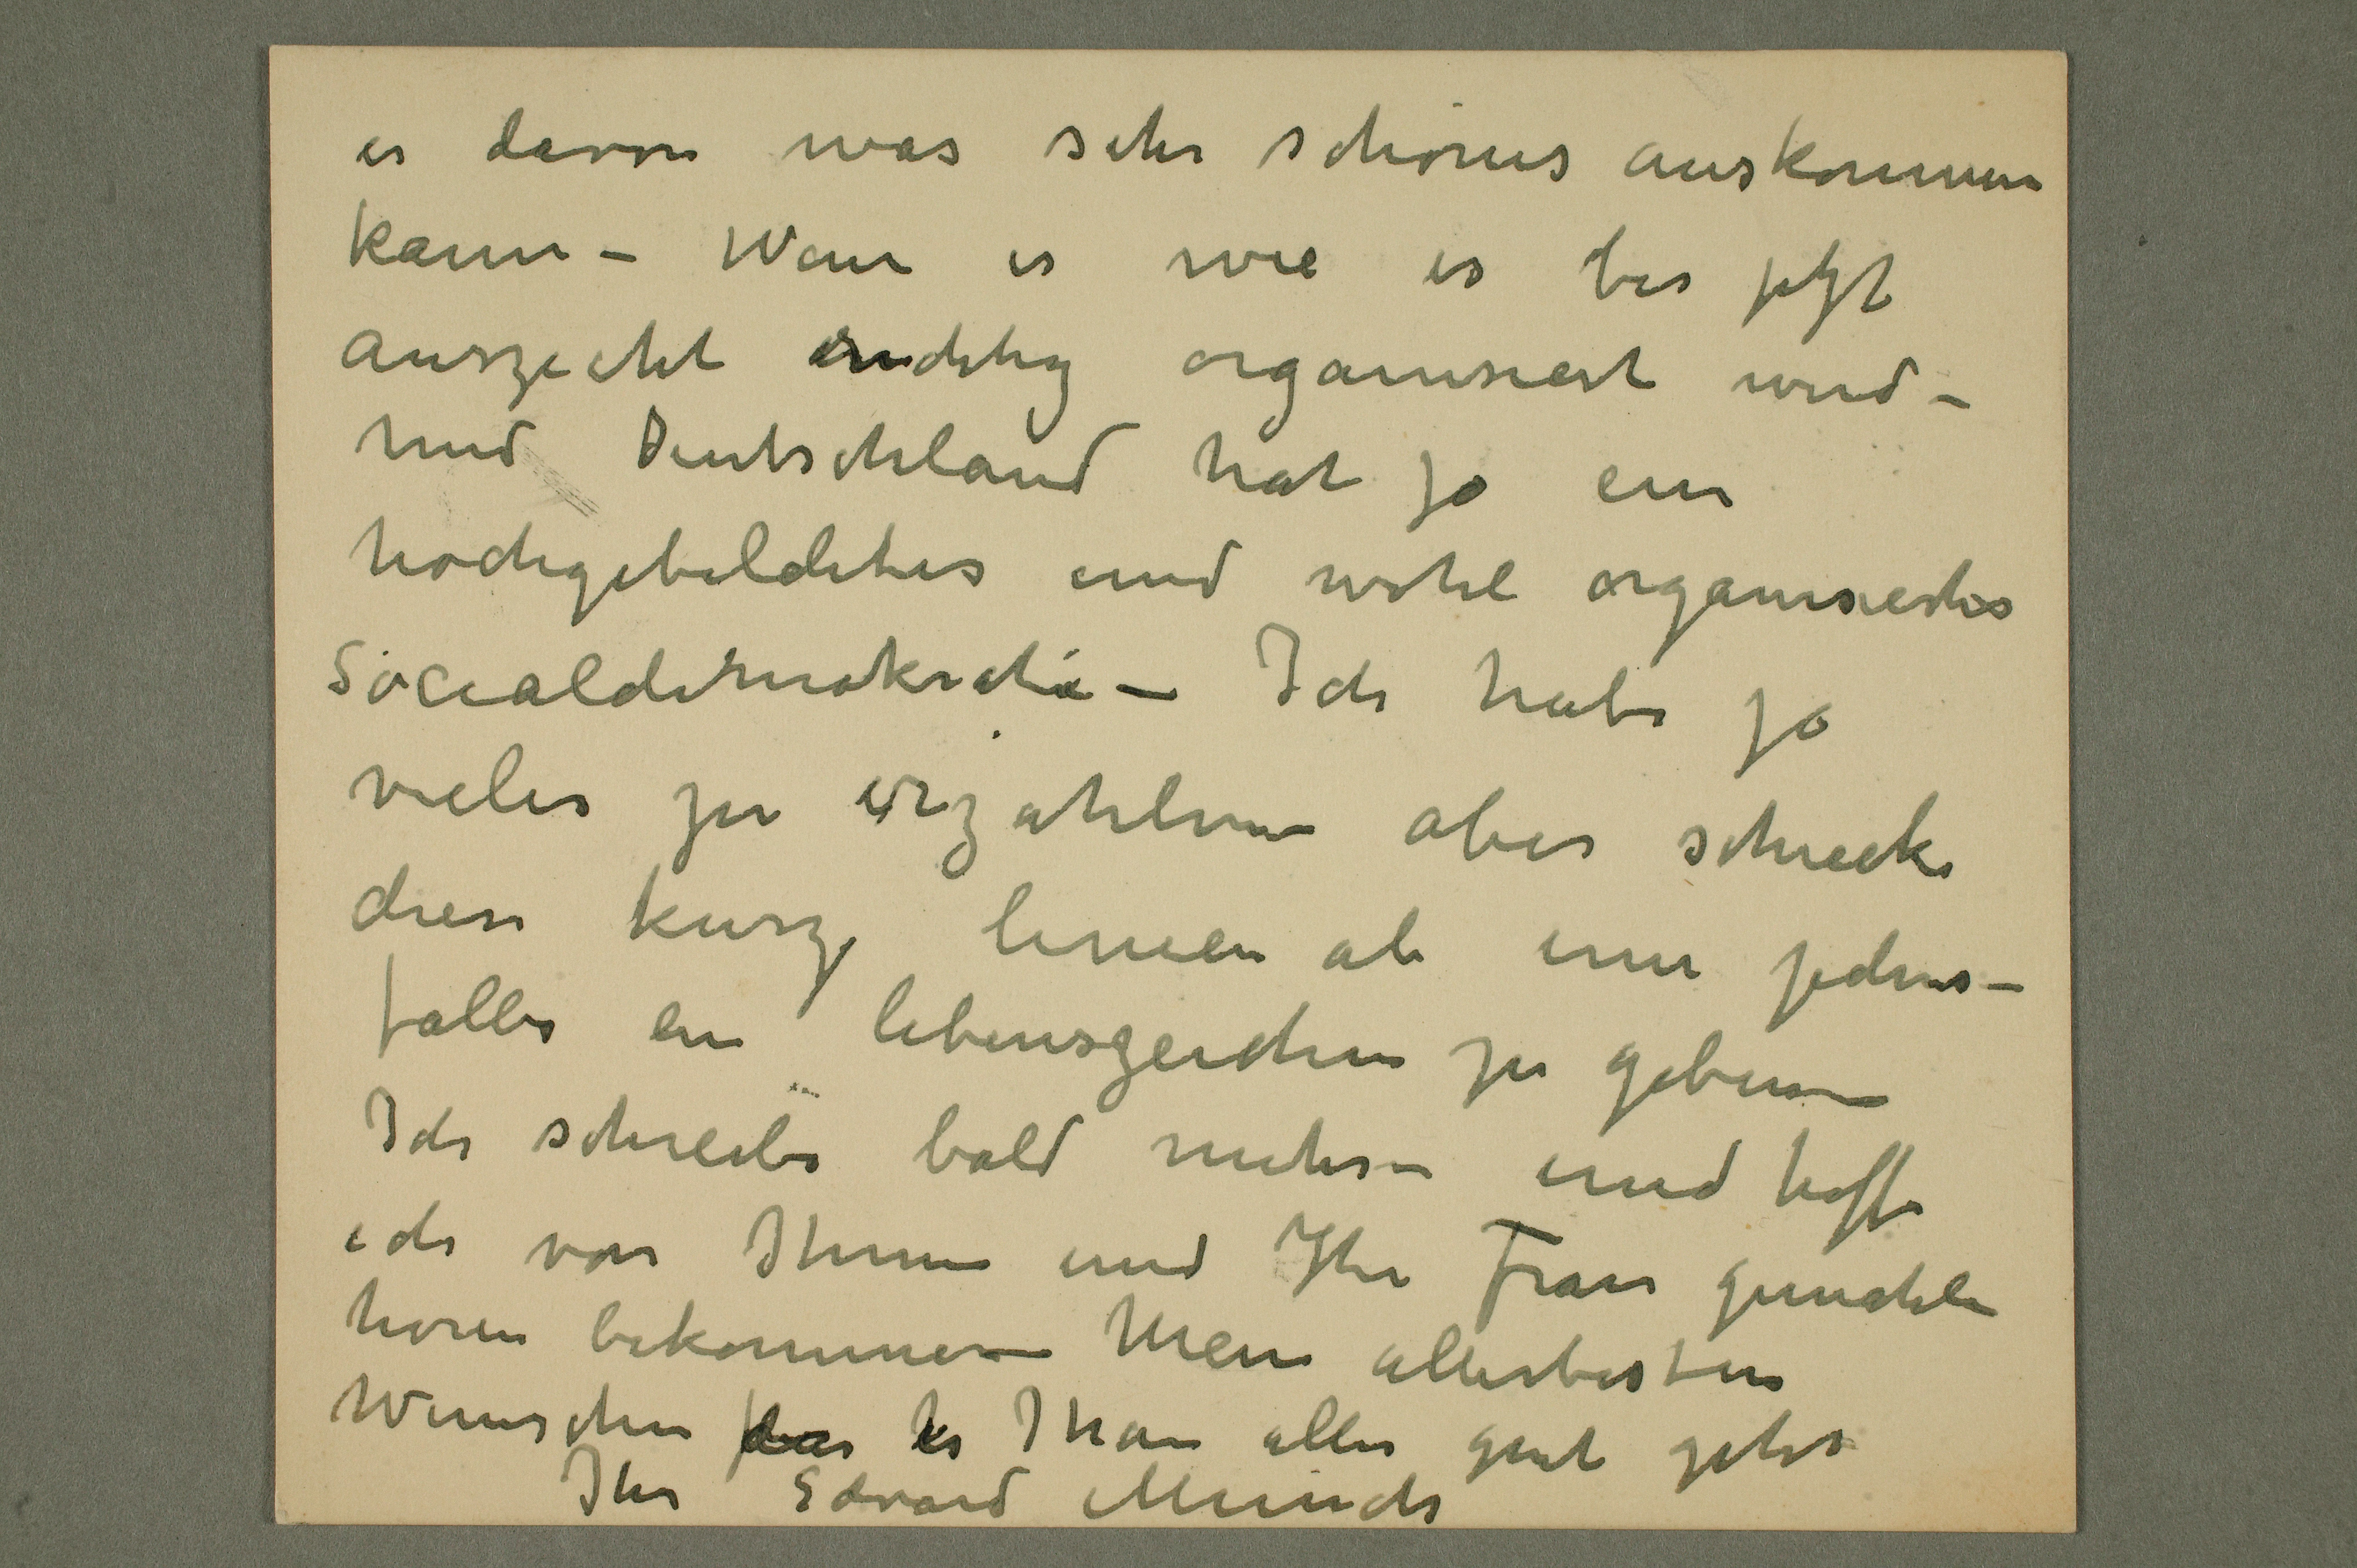 es davon was sehr schönes auskommen
kann – Wenn es wie es bis jetzt
auszecht richtig organisiert wird –
und Deutschland hat ja ein
hochgebildetes und wohl organisiertes
Socialdemokratie – Ich habe ja
vieles zu erzahlen – aber schecke
diese kurze linien ab um jedens-
falls ein lebenszeichen zu geben –
Ich schreibe bald mehr – und hoffe
ich von Ihnen und Ihr Frau gemahlin
horen bekommen – Mein allerbesten
Wunschen das es Ihan alles gut gehet
Ihr Edvard Munch